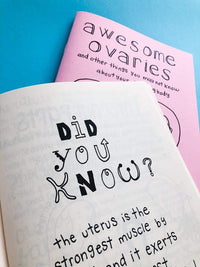 awesome
ovaries
and other things you may not know
about your body
DiD
you
KNOW?
the uterus is the
strongest muscle by
and it exerts